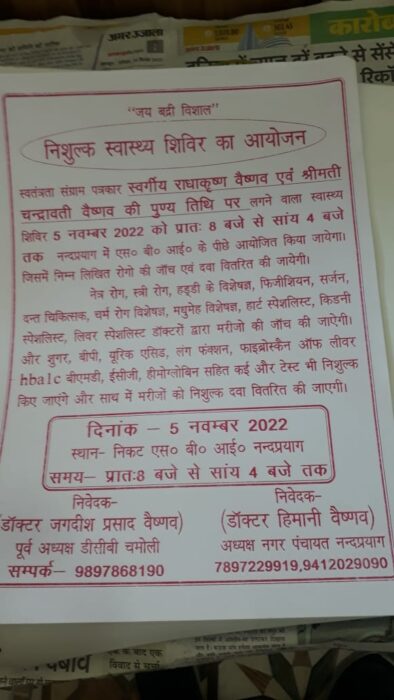 अमर उजाला
कारोब
"जय बद्री विशाल"
निशुल्क स्वास्थ्य शिविर का आयोजन
स्वतंत्रता संग्राम पत्रकार स्वर्गीय राधाकृष्ण वैष्णव एवं श्रीमती
चन्द्रावती वैष्णव की पुण्य तिथि पर लगने वाला स्वास्थ्य
शिविर 5 नवम्बर 2022 को प्रातः 8 बजे से सांय 4 बजे
तक नन्दप्रयाग में एस० बी० आई० के पीछे आयोजित किया जायेगा।
जिसमें निम्न लिखित रोगो की जाँच एवं दवा वितरित की जायेगी।
नेत्र रोग, स्त्री रोग, हड्डी के विशेषज्ञ, फिजीशियन, सर्जन,
दन्त चिकित्सक, चर्म रोग विशेषज्ञ, मधुमेह विशेषज्ञ, हार्ट स्पेशलिस्ट, किडनी
स्पेशलिस्ट, लिवर स्पेशलिस्ट डॉक्टरों द्वारा मरीजो की जाँच की जाऐगी।
और शुगर, बीपी, यूरिक एसिड, लंग फंक्शन, फाइब्रोस्कैन ऑफ लीवर
hbalc बीएमडी, ईसीजी, हीमोग्लोबिन सहित कई और टेस्ट भी निशुल्क
किए जाएंगे और साथ में मरीजों को निशुल्क दवा वितरित की जाएगी।
दिनांक – 5 नवम्बर 2022
स्थान- निकट एस० बी० आई० नन्दप्रयाग
समय– प्रातः8 बजे से सांय 4 बजे तक
निवेदक-
(डॉक्टर जगदीश प्रसाद वैष्णव)
पूर्व अध्यक्ष डीसीबी चमोली
सम्पर्क– 9897868190
निवेदक-
(डॉक्टर हिमानी वैष्णव)
अध्यक्ष नगर पंचायत नन्दप्रयाग
7897229919,9412029090
के बाद एक
विवाद से